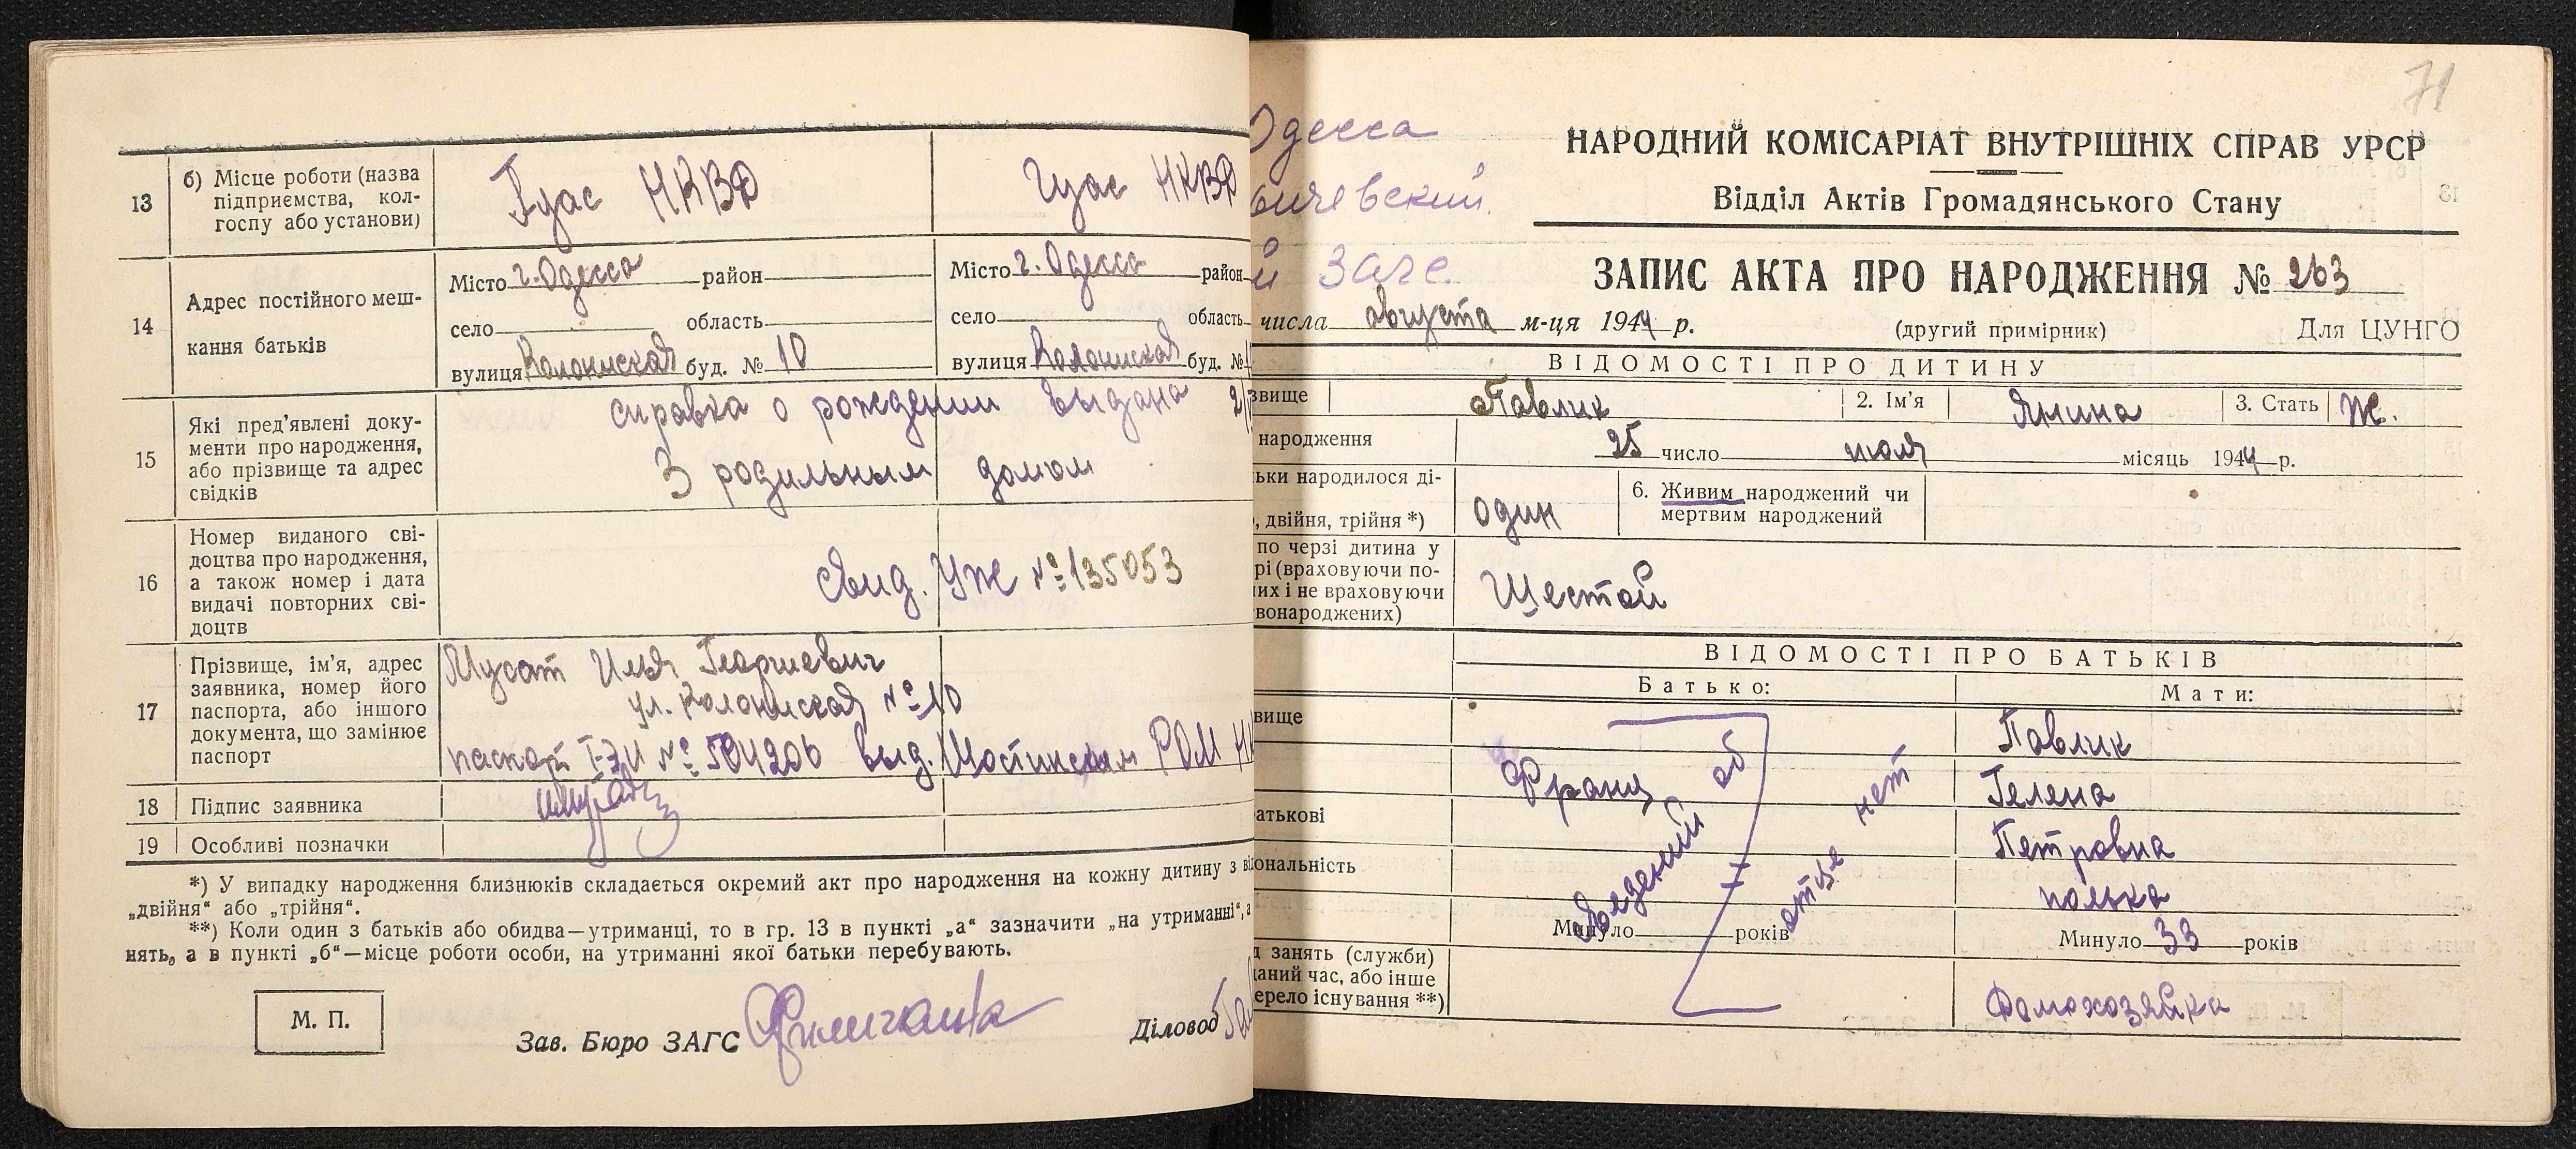 13
б) Місце роботи (назва
підприємства, кол-
госпу або установи)
НКВД
НКВД
14
Адрес постійного меш-
кання батьків
Місто г. Одесса район
село область
вулиця буд. № 10
Місто г. Одесса район
село область
вулиця буд. №
15
Які пред’явлені доку-
менти про народження,
або прізвище та адрес
свідків
справка о рождении выдана
3 родильным домом
16
Номер виданого сві-
доцтва про народження,
а також номер і дата
видачі повторних сві-
доцтв
Свид. УЖ № 135053
17
Прізвище, ім’я, адрес
заявника, номер його
паспорта, або іншого
документа, що замінює
паспорт
Мусат Илья Георгиевич
ул. № 10
паспорт № выд. Шостинским РОМ
18 Підпис заявника
19 Особливі позначки
*) У випадку народження близнюків складається окремий акт про народження на кожну дитину з
„двійня“ або „трійня“.
**) Коли один з батьків або обидва—утриманці, то в гр. 13 в пункті „а“ зазначити „на утриманні“, а
нять, а в пункті „б“—місце роботи особи, на утриманні якої батьки перебувають.
М. П.
Зав. Бюро ЗАГС
Діловод
71
Одесса
НАРОДНИЙ КОМІСАРІАТ ВНУТРІШНІХ СПРАВ УРСР
Відділ Актів Громадянського Стану
ЗАПИС АКТА ПРО НАРОДЖЕННЯ № 263
числа августа м-ця 1944 р.
(другий примірник)
Для ЦУНГО
ВІДОМОСТІ ПРО ДИТИНУ
звище Павлик 2. Ім’я Янина 3. Стать Ж.
народження 25 число июля місяць 1944 р.
ьки народилося ді-
, двійня, трійня *)
один
6. Живим народжений чи
мертвим народжений
по черзі дитина у
рі (враховуючи по-
них і не враховуючи
вонароджених)
Шестой
ВІДОМОСТІ ПРО БАТЬКІВ
Батько:
Мати:
вище
Павлик
Франц
Гелена
атькові
Петровна
ональність
полька
Сведений об отце нет
Минуло років
Минуло 33 років
д занять (служби)
даний час, або інше
ерело існування **)
Домохозяйка